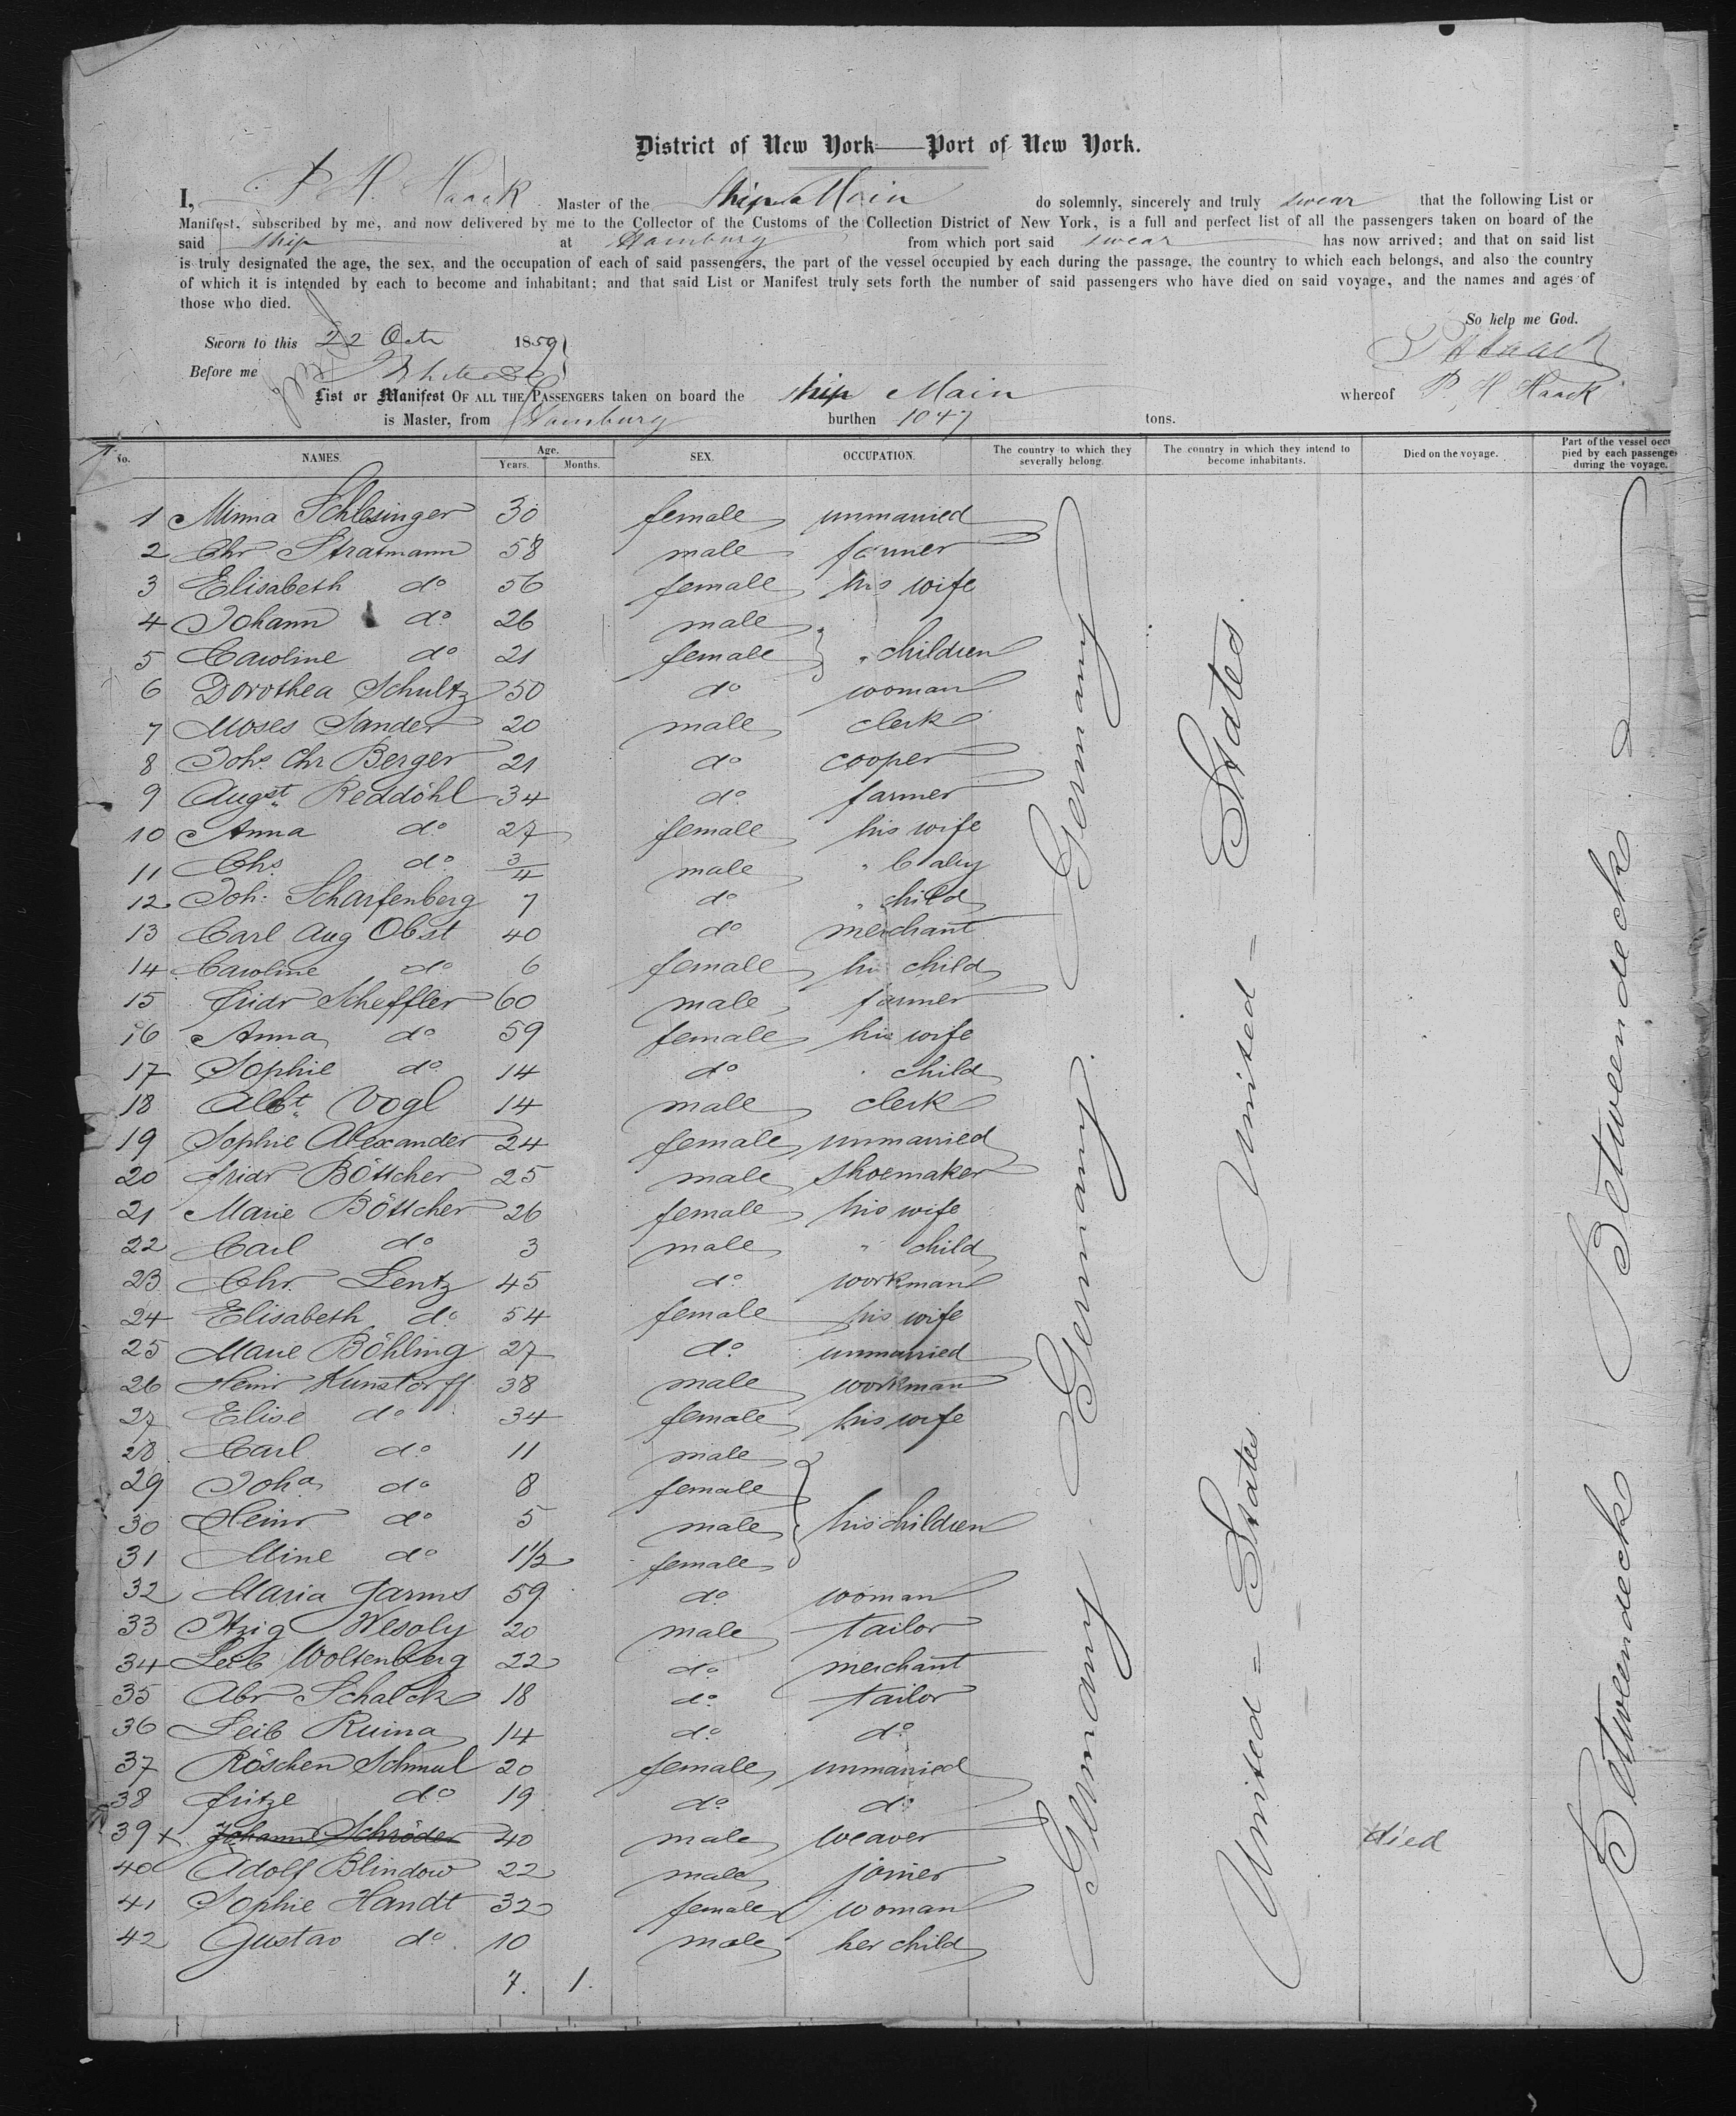 District of New York — Port of New York.
I, P. H. Haack Master of the ship Main do solemnly, sincerely and truly swear that the following List or
Manifest, subscribed by me, and now delivered by me to the Collector of the Customs of the Collection District of New York, is a full and perfect list of all the passengers taken on board of the
said ship at Hamburg from which port said swear has now arrived; and that on said list
is truly designated the age, the sex, and the occupation of each of said passengers, the part of the vessel occupied by each during the passage, the country to which each belongs, and also the country
of which it is intended by each to become and inhabitant; and that said List or Manifest truly sets forth the number of said passengers who have died on said voyage, and the names and ages of
those who died.
So help me God.
Sworn to this 22 Oct 1859
P H Haack
Before me
List or Manifest OF ALL THE PASSENGERS taken on board the ship Main whereof P. H. Haack
is Master, from Hamburg burthen 1047 tons.
No. NAMES. Age. Years. Months. SEX. OCCUPATION. The country to which they severally belong. The country in which they intend to become inhabitants. Died on the voyage. Part of the vessel occupied by each passenger during the voyage.
1 Minna Schlesinger 30 female unmarried
2 Chr. Stratmann 58 male farmer
3 Elisabeth do 56 female his wife
4 Johann do 26 male
5 Caroline do 21 female " children
6 Dorothea Schultz 50 do woman
7 Moses Sander 20 male clerk
8 Johs Chr Berger 21 do cooper
9 Augst Reddöhl 34 do farmer
10 Anna do 27 female his wife
11 Chs do 3/4 male " baby
12 Joh: Scharfenberg 7 do " child
13 Carl Aug Obst 40 do merchant
14 Caroline do 6 female his child
15 Fridr Scheffler 60 male farmer
16 Anna do 59 female his wife
17 Sophie do 14 do " child
18 Albt Vogl 14 male clerk
19 Sophie Alexander 24 female unmarried
20 Fridr Böttcher 25 male shoemaker
21 Marie Böttcher 26 female his wife
22 Carl do 3 male " child
23 Chr. Lentz 45 do workman
24 Elisabeth do 54 female his wife
25 Marie Böhling 27 do unmarried
26 Heinr Kunstorff 38 male workman
27 Elise do 34 female his wife
28 Carl do 11 male
29 Joha do 8 female
30 Heinr do 5 male his children
31 Mine do 1 1/2 female
32 Maria Garms 59 do woman
33 Itzig Wesoly 20 male tailor
34 Leib Woltenberg 22 do merchant
35 Abr Schalck 18 do tailor
36 Leib Ruina 14 do do
37 Röschen Schmul 20 female unmarried
38 Fritze do 19 do do
39 x Johann Schröder 40 male weaver died
40 Adolf Blindow 22 male joiner
41 Sophie Handt 32 female woman
42 Gustav do 10 male her child
7. 1.
Germany Germany Germany
United = States United = States
Betweendecks Betweendecks